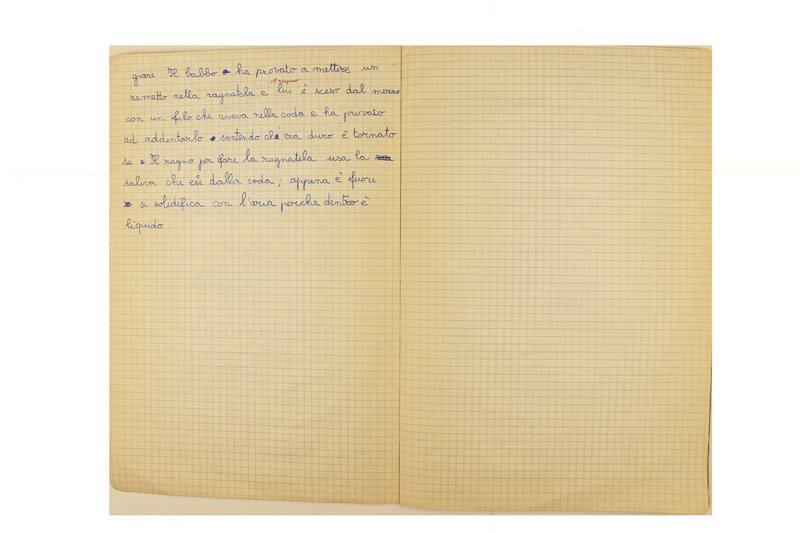 giare. Il babbo ha provato a mettere un
il ragno
rametto nella ragnatela e lui è sceso dal
con un filo che aveva nella coda e ha provato
ad addentarlo sentendo che era duro è tornato
su. Il ragno per fare la ragnatela usa la
saliva che esē dalla coda; appena è fuori
si solidifica con l'aria perche dentro è
liquido.